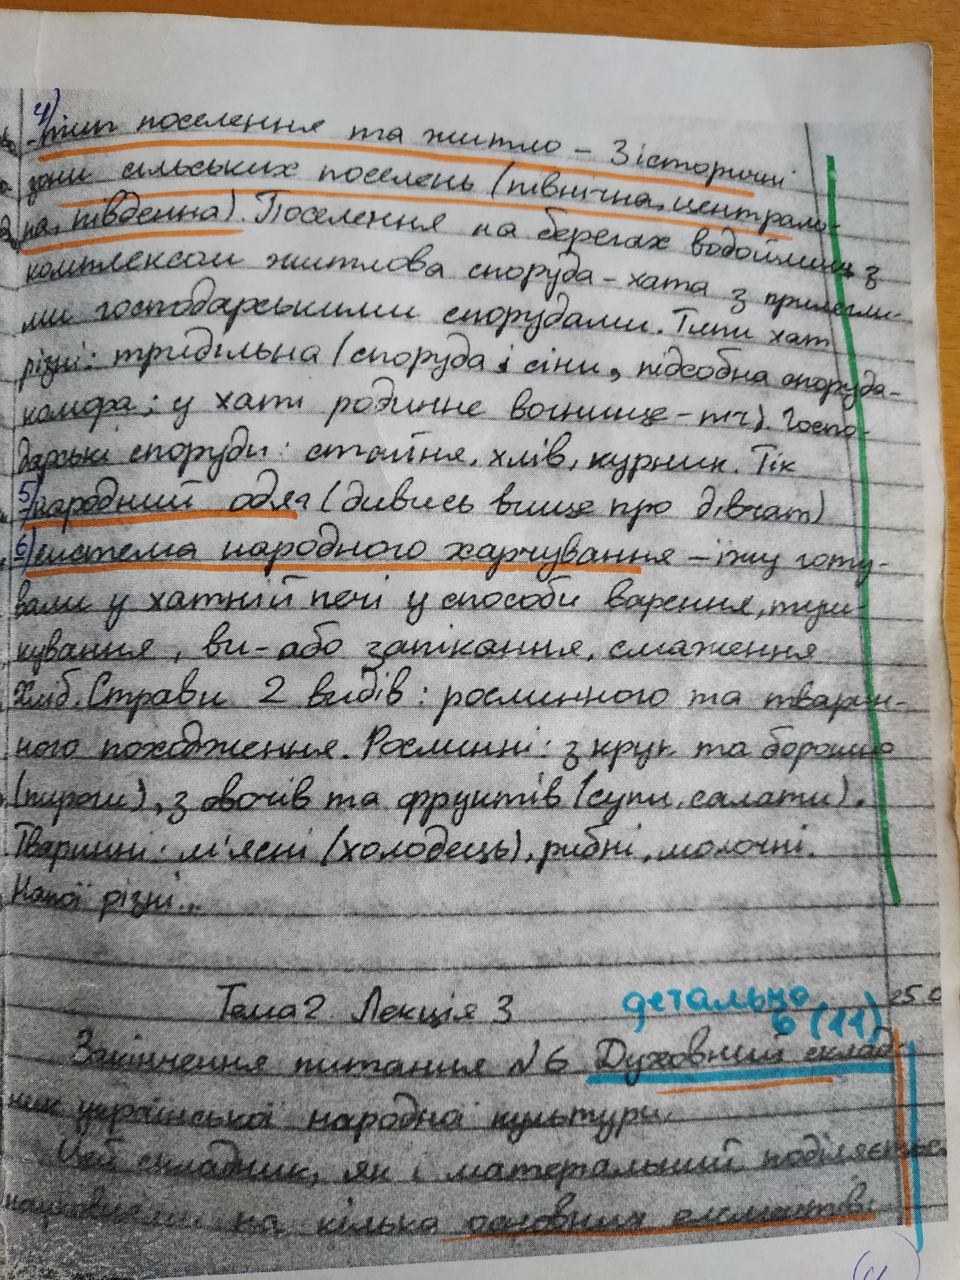 4)
- тип поселення та житло – 3 історичні
зони сільських поселень (північна, централь-
на, південна). Поселення на берегах водоймищ з
комплексом житлова споруда – хата з прилегли-
ми господарськими спорудами. Типи хат
різні: тридільна (споруда і сіни, підсобна споруда-
комора; у хаті родинне вогнище – піч). Госпо-
дарські споруди: стайня, хлів, курник. Тік
5) - народний одяг (дивись вище про дівчат)
6) система народного харчування – їжу готу-
вали у хатній печі у способи варення, туш-
кування, ви- або запікання, смаження
Хліб. Страви 2 видів: рослинного та тварин-
ного походження. Рослинні: з круп та борошна
(пироги), з овочів та фруктів (супи, салати).
Тваринні: м'ясні (холодець), рибні, молочні.
Напої різні...
Тема 2 Лекція 3
детально
6 (11)
Закінчення питання №6 Духовний склад-
ник української народної культури.
Цей складник, як і матеріальний поділяється
на кілька основних елементів: